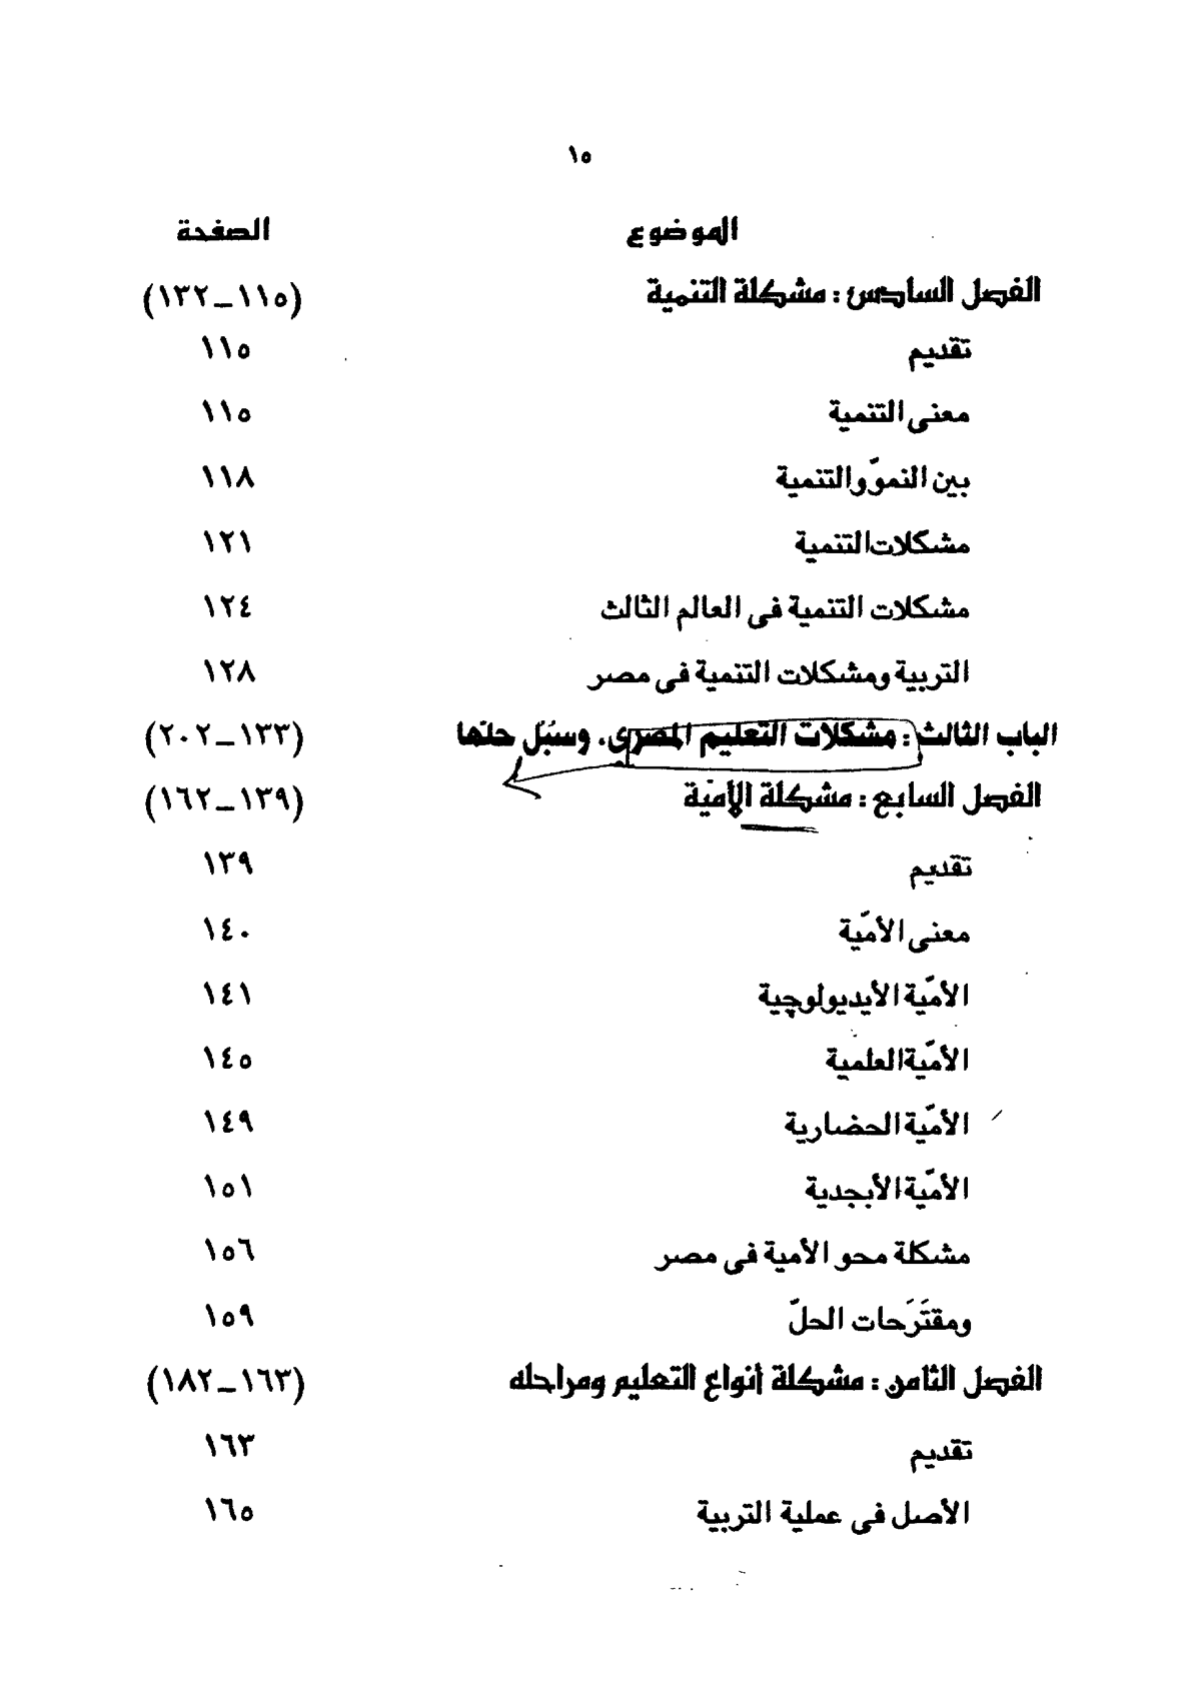 ١٥
الموضوع الصفحة
الفصل السادس : مشكلة التنمية (١١٥ـ١٣٢)
تقديم ١١٥
معنى التنمية ١١٥
بين النموّ والتنمية ١١٨
مشكلات التنمية ١٢١
مشكلات التنمية فى العالم الثالث ١٢٤
التربية ومشكلات التنمية فى مصر ١٢٨
الباب الثالث : مشكلات التعليم المصرى، وسُبُل حلّها (١٣٣ـ٢٠٢)
الفصل السابع : مشكلة الأمّيّة (١٣٩ـ١٦٢)
تقديم ١٣٩
معنى الأمّيّة ١٤٠
الأمّيّة الأيديولوچية ١٤١
الأمّيّة العلمية ١٤٥
الأمّيّة الحضارية ١٤٩
الأمّيّة الأبجدية ١٥١
مشكلة محو الأمية فى مصر ١٥٦
ومقتَرَحات الحلّ ١٥٩
الفصل الثامن : مشكلة أنواع التعليم ومراحله (١٦٣ـ١٨٢)
تقديم ١٦٣
الأصل فى عملية التربية ١٦٥